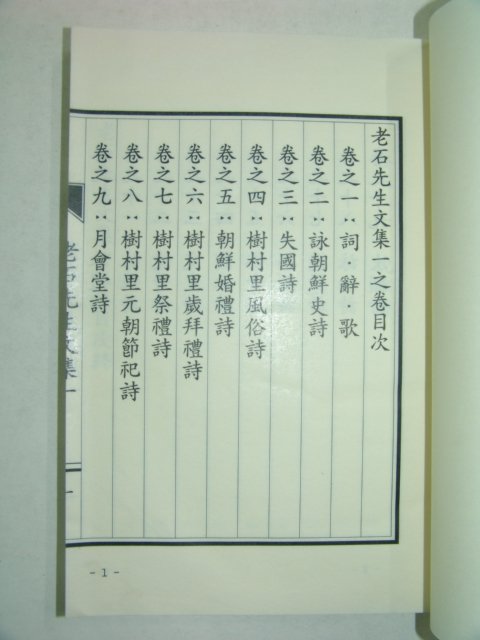 老石先生文集一之卷目次
卷之一：詞·辭·歌
卷之二：詠朝鮮史詩
卷之三：失國詩
卷之四：樹村里風俗詩
卷之五：朝鮮婚禮詩
卷之六：樹村里歲拜禮詩
卷之七：樹村里祭禮詩
卷之八：樹村里元朝節祀詩
卷之九：月會堂詩
老石先生文集一
一
- 1 -